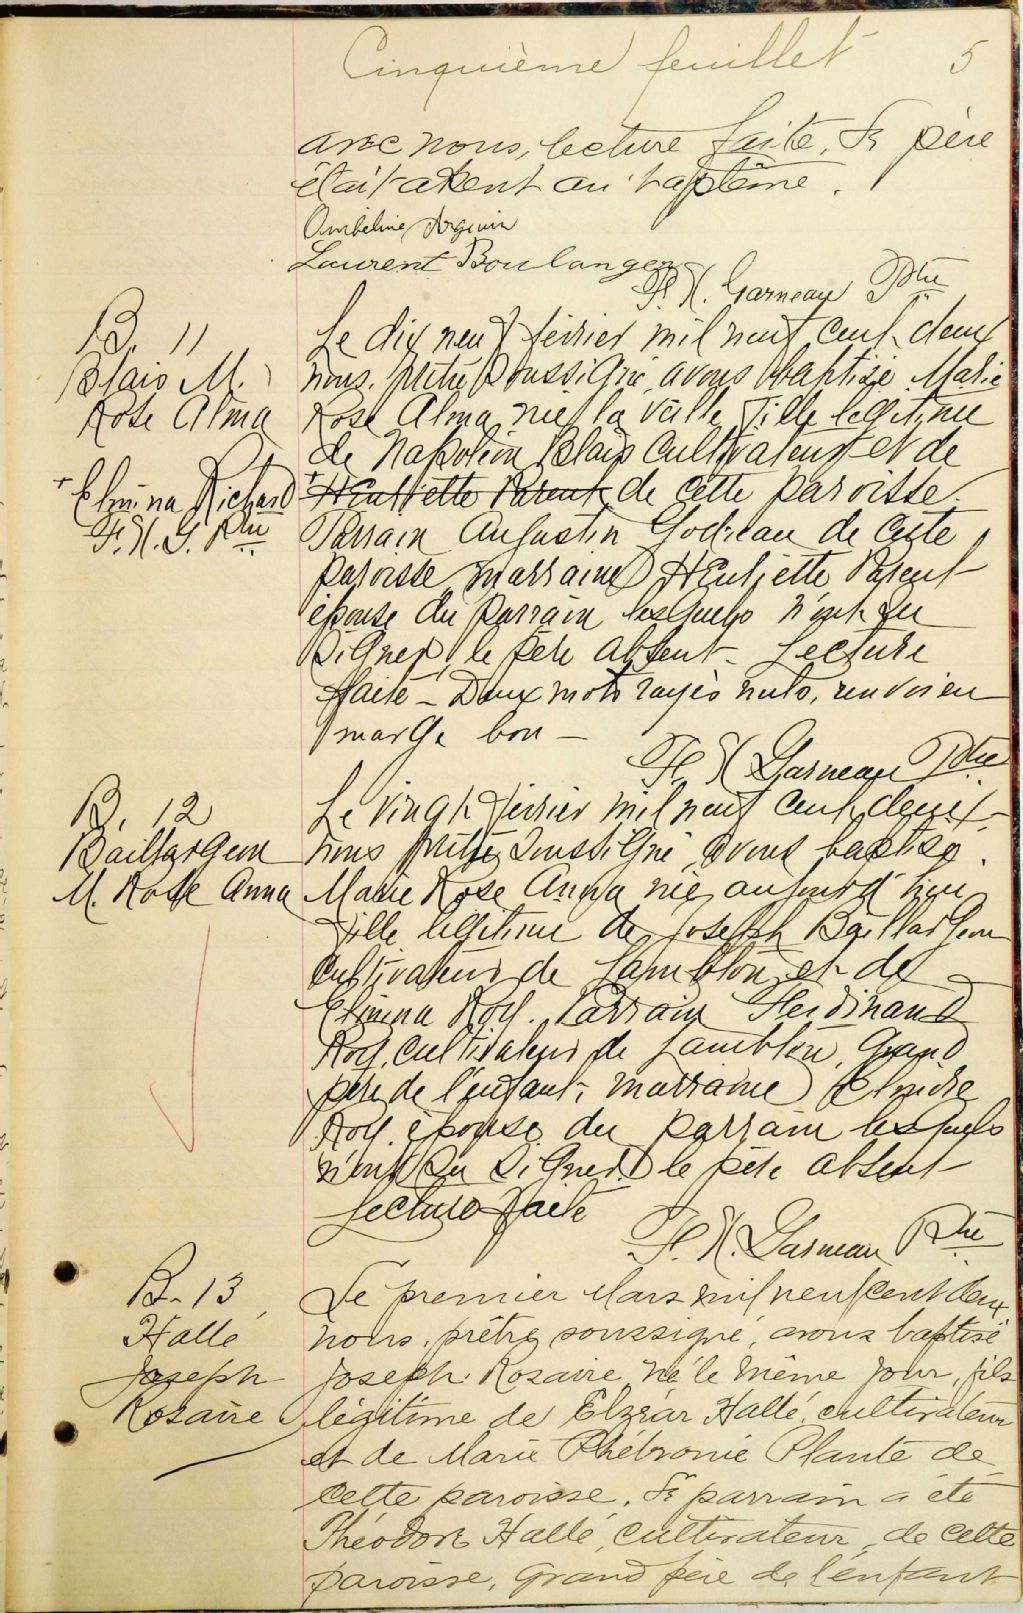 Cinquième feuillet 5
avec nous, lecture faite. Le père
était absent au baptême.
Ombéline Arguin
Laurent Boulanger
F. X. Garneau Ptre
B. 11
Blais M.
Rose Alma
+ Elmina Richard
F. X. G. Ptre
Le dix neuf février mil neuf cent deux
nous prêtre soussigné avons baptisé Marie
Rose Alma née la veille fille légitime
de Napoléon Blais cultivateur et de
+ Henriette Parent de cette paroisse.
Parrain Augustin Godreau de cette
paroisse marraine Henriette Parent
épouse du parrain lesquels n'ont su
signer, le père absent - Lecture
faite - Deux mots rayés nuls, renvoi en
marge bon -
F. X Garneau Ptre
B. 12
Baillargeon
M. Rose Anna
Le vingt février mil neuf cent deux
nous prêtre soussigné avons baptisé
Marie Rose Anna née aujourd'hui
fille légitime de Joseph Baillargeon
cultivateur de Lambton et de
Elmina Roy. Parrain Ferdinand
Roy, cultivateur de Lambton, Grand
père de l'enfant, marraine
Roy épouse du parrain lesquels
n'ont su signer. le père absent
Lecture faite
F. X. Garneau Ptre
B. 13
Hallé
Joseph
Rosaire
Le premier Mars mil neuf cent deux
nous, prêtre soussigné, avons baptisé
Joseph Rosaire, né le même jour, fils
légitime de Elzéar Hallé, cultivateur
et de Marie Phébronie Plante de
cette paroisse. Le parrain a été
Théodore Hallé, cultivateur, de cette
paroisse, grand père de l'enfant